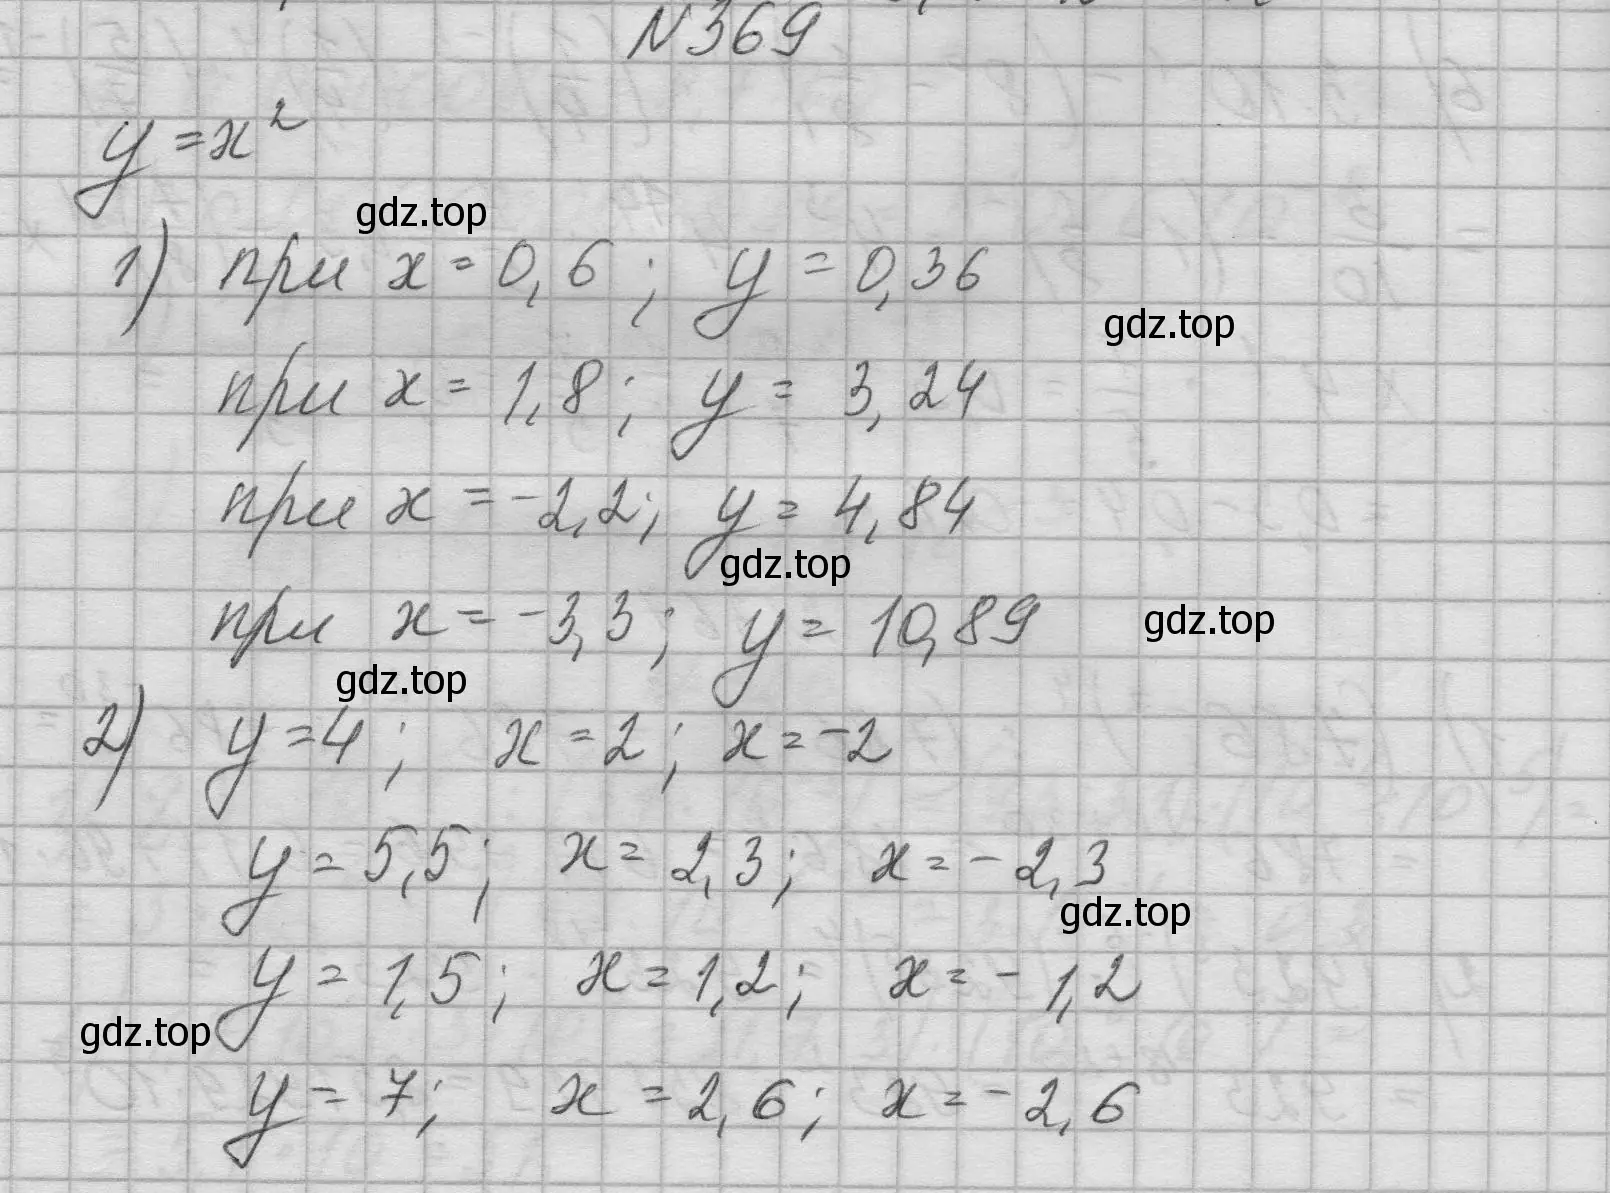 N369
y = x²
gdz.top
1) при x = 0,6; y = 0,36
gdz.top
при x = 1,8; y = 3,24
при x = -2,2; y = 4,84
gdz.top
при x = -3,3; y = 10,89
gdz.top
gdz.top
2) y = 4; x = 2; x = -2
y = 5,5; x = 2,3; x = -2,3
gdz.top
y = 1,5; x = 1,2; x = -1,2
gdz.top
y = 7; x = 2,6; x = -2,6